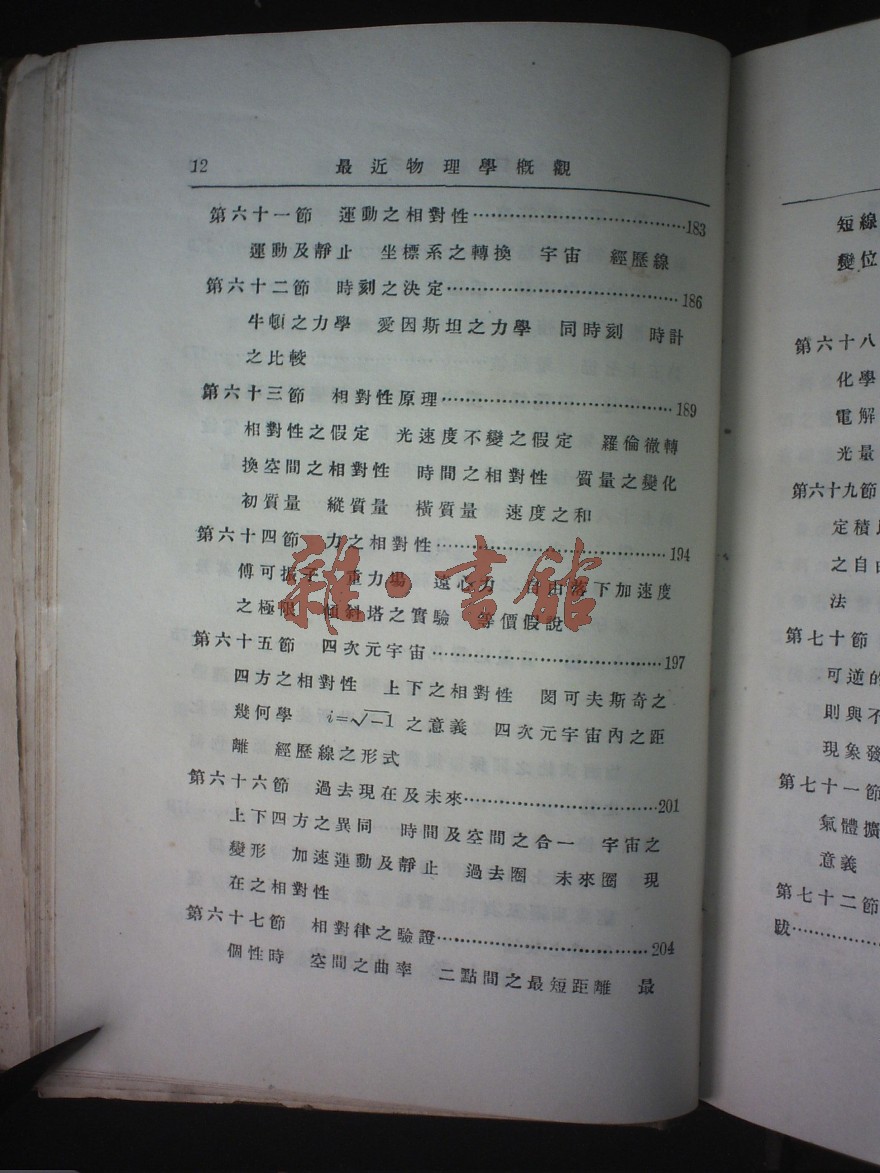 12 最近物理學概觀
第六十一節 運動之相對性……………………183
運動及靜止 坐標系之轉換 宇宙 經歷線
第六十二節 時刻之決定……………………186
牛頓之力學 愛因斯坦之力學 同時刻 時計
之比較
第六十三節 相對性原理……………………189
相對性之假定 光速度不變之假定 羅倫徹轉
換空間之相對性 時間之相對性 質量之變化
初質量 縱質量 橫質量 速度之和
第六十四節 力之相對性……………………194
傅可振子 重力場 遠心力 自由落下加速度
之極限 傾斜塔之實驗 等價假說
第六十五節 四次元宇宙……………………197
四方之相對性 上下之相對性 閔可夫斯奇之
幾何學 i=√−1 之意義 四次元宇宙內之距
離 經歷線之形式
第六十六節 過去現在及未來……………………201
上下四方之異同 時間及空間之合一 宇宙之
變形 加速運動及靜止 過去圈 未來圈 現
在之相對性
第六十七節 相對律之驗證……………………204
個性時 空間之曲率 二點間之最短距離 最
雜·書館
短線
變位
第六十八
化學
電解
光量
第六十九節
定積比
之自由
法
第七十節
可逆的
則與不
現象發
第七十一節
氣體擴
意義
第七十二節
跋……………